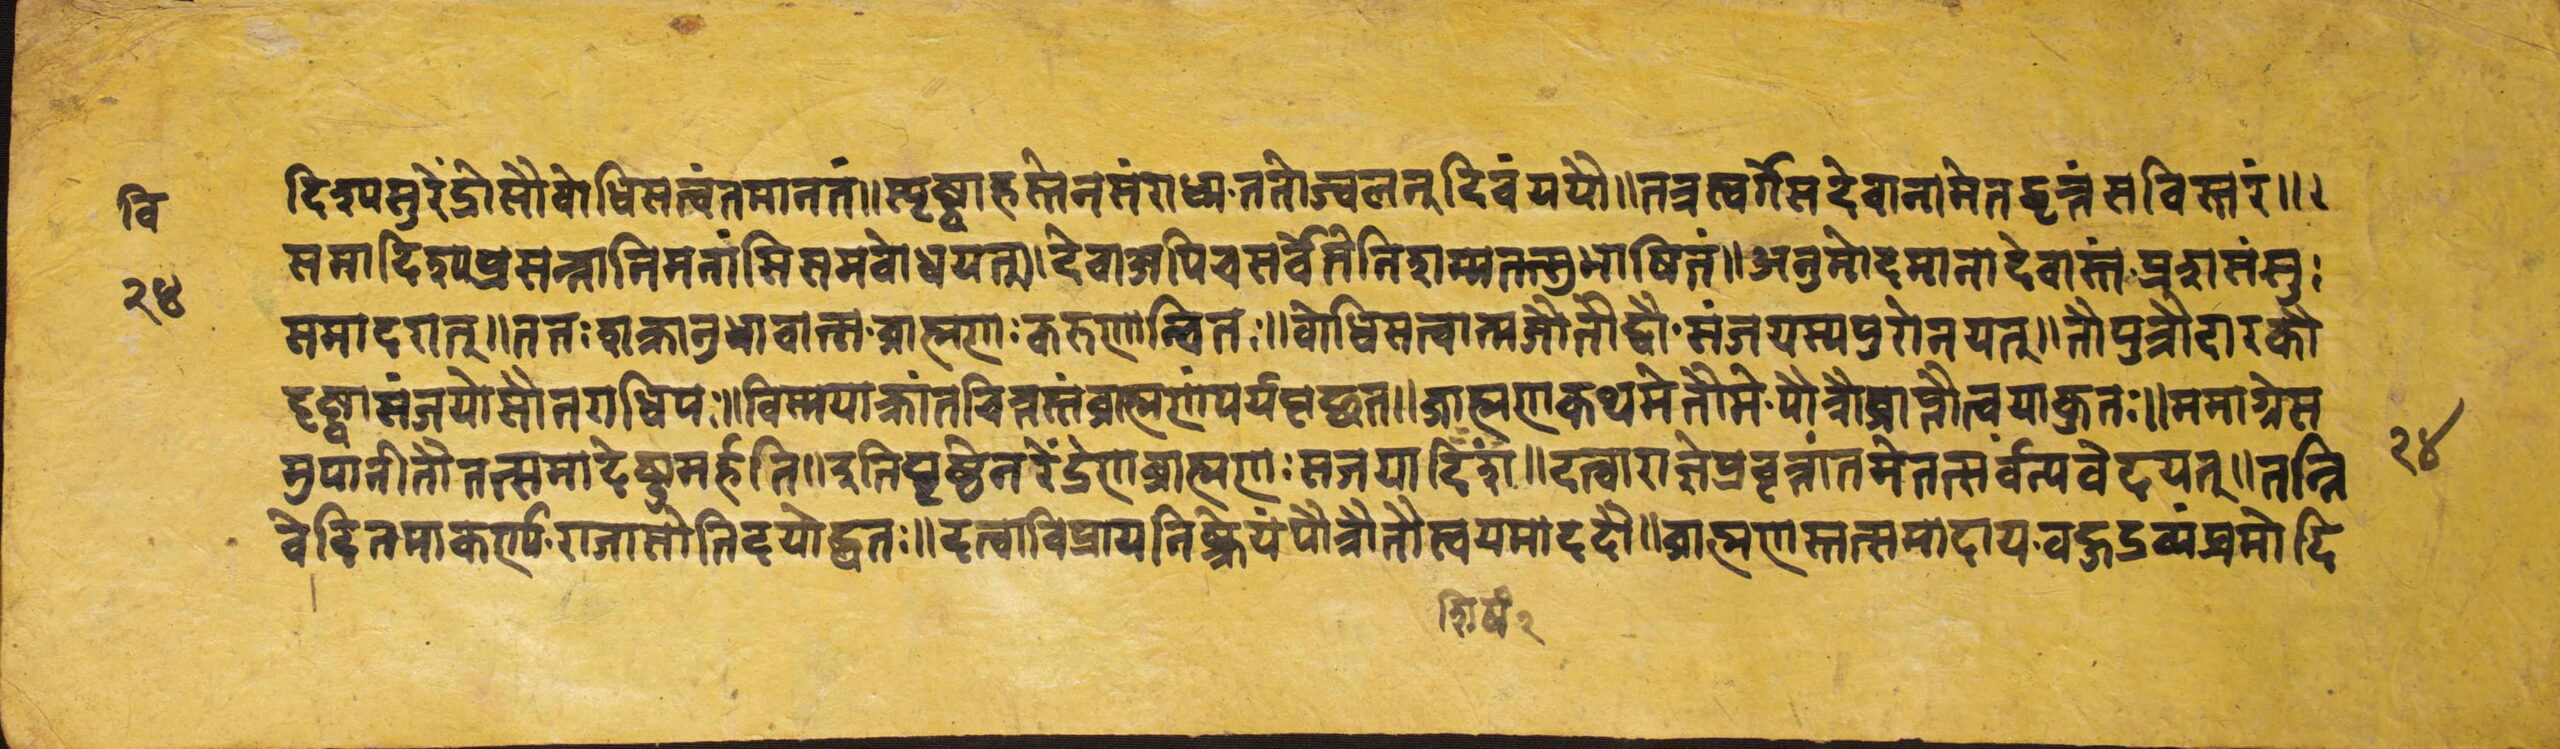 वि
२४
दिश्य सुरेंद्रोसौ वोधिसत्वं तमानतं॥ स्पृष्ट्वा हस्तेन संराध्य ततो ज्वलन् दिवं ययौ॥ तत्र स्वर्गे स देवानामेतद्वृत्तं सविस्तरं॥
समादिश्य प्रसन्नानि मनांसि समवोधयत्॥ देवा अपि च सर्वे तेनिशम्य तत्सुभाषितं॥ अनुमोदमानो देवास्तं प्रशसंसुः
समादरात्॥ ततः शक्रानुभावात्स व्राह्मणः करुणान्वितः॥ वोधिसत्वात्मजौ तौ द्वौ संजयस्य पुरोनयत्॥ तौ पुत्रौ दारकौ
दृष्ट्वा संजयोसौ नराधिपः॥ विस्मयाक्रांतचित्तस्तं व्राह्मणं पर्यपृच्छत॥ व्राह्मण कथमेतौ मे पौत्रौ प्राप्तौ त्वया कुतः॥ ममाग्रे स
मुपानीतौ तत्समादेष्टुमर्हति॥ इति पृष्टे नरेंद्रेण व्राह्मणः स जयाशिषं॥ दत्वा राज्ञे प्रवृत्तांतमेतत्सर्वं न्यवेदयत्॥ तन्नि
वेदितमाकर्ण्य राजासौ निदयोद्धतः॥ दत्वा विप्राय निष्क्रेयं पौत्रौ तौ स्वयमाददौ॥ व्राह्मणस्तत्समादाय वहुद्रव्यं प्रमोदि
२४
शिषं २